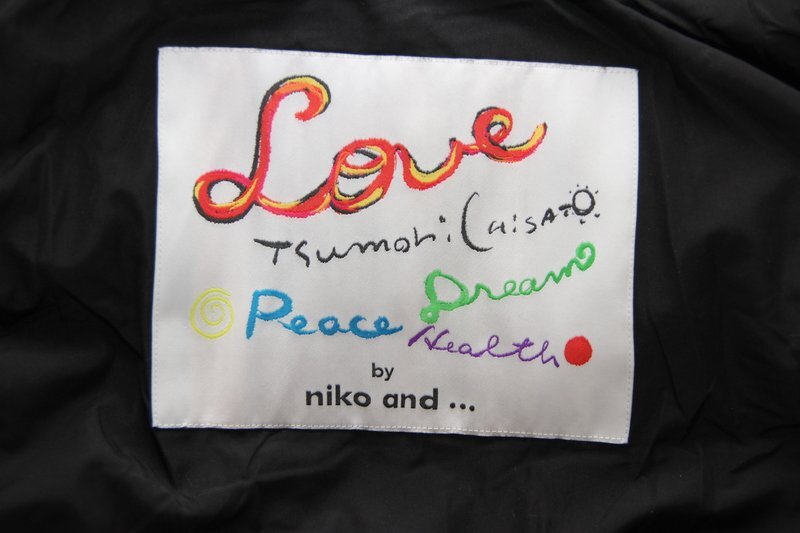 Love
Tsumori Chisato
Dream
Peace
Health
by
niko and ...